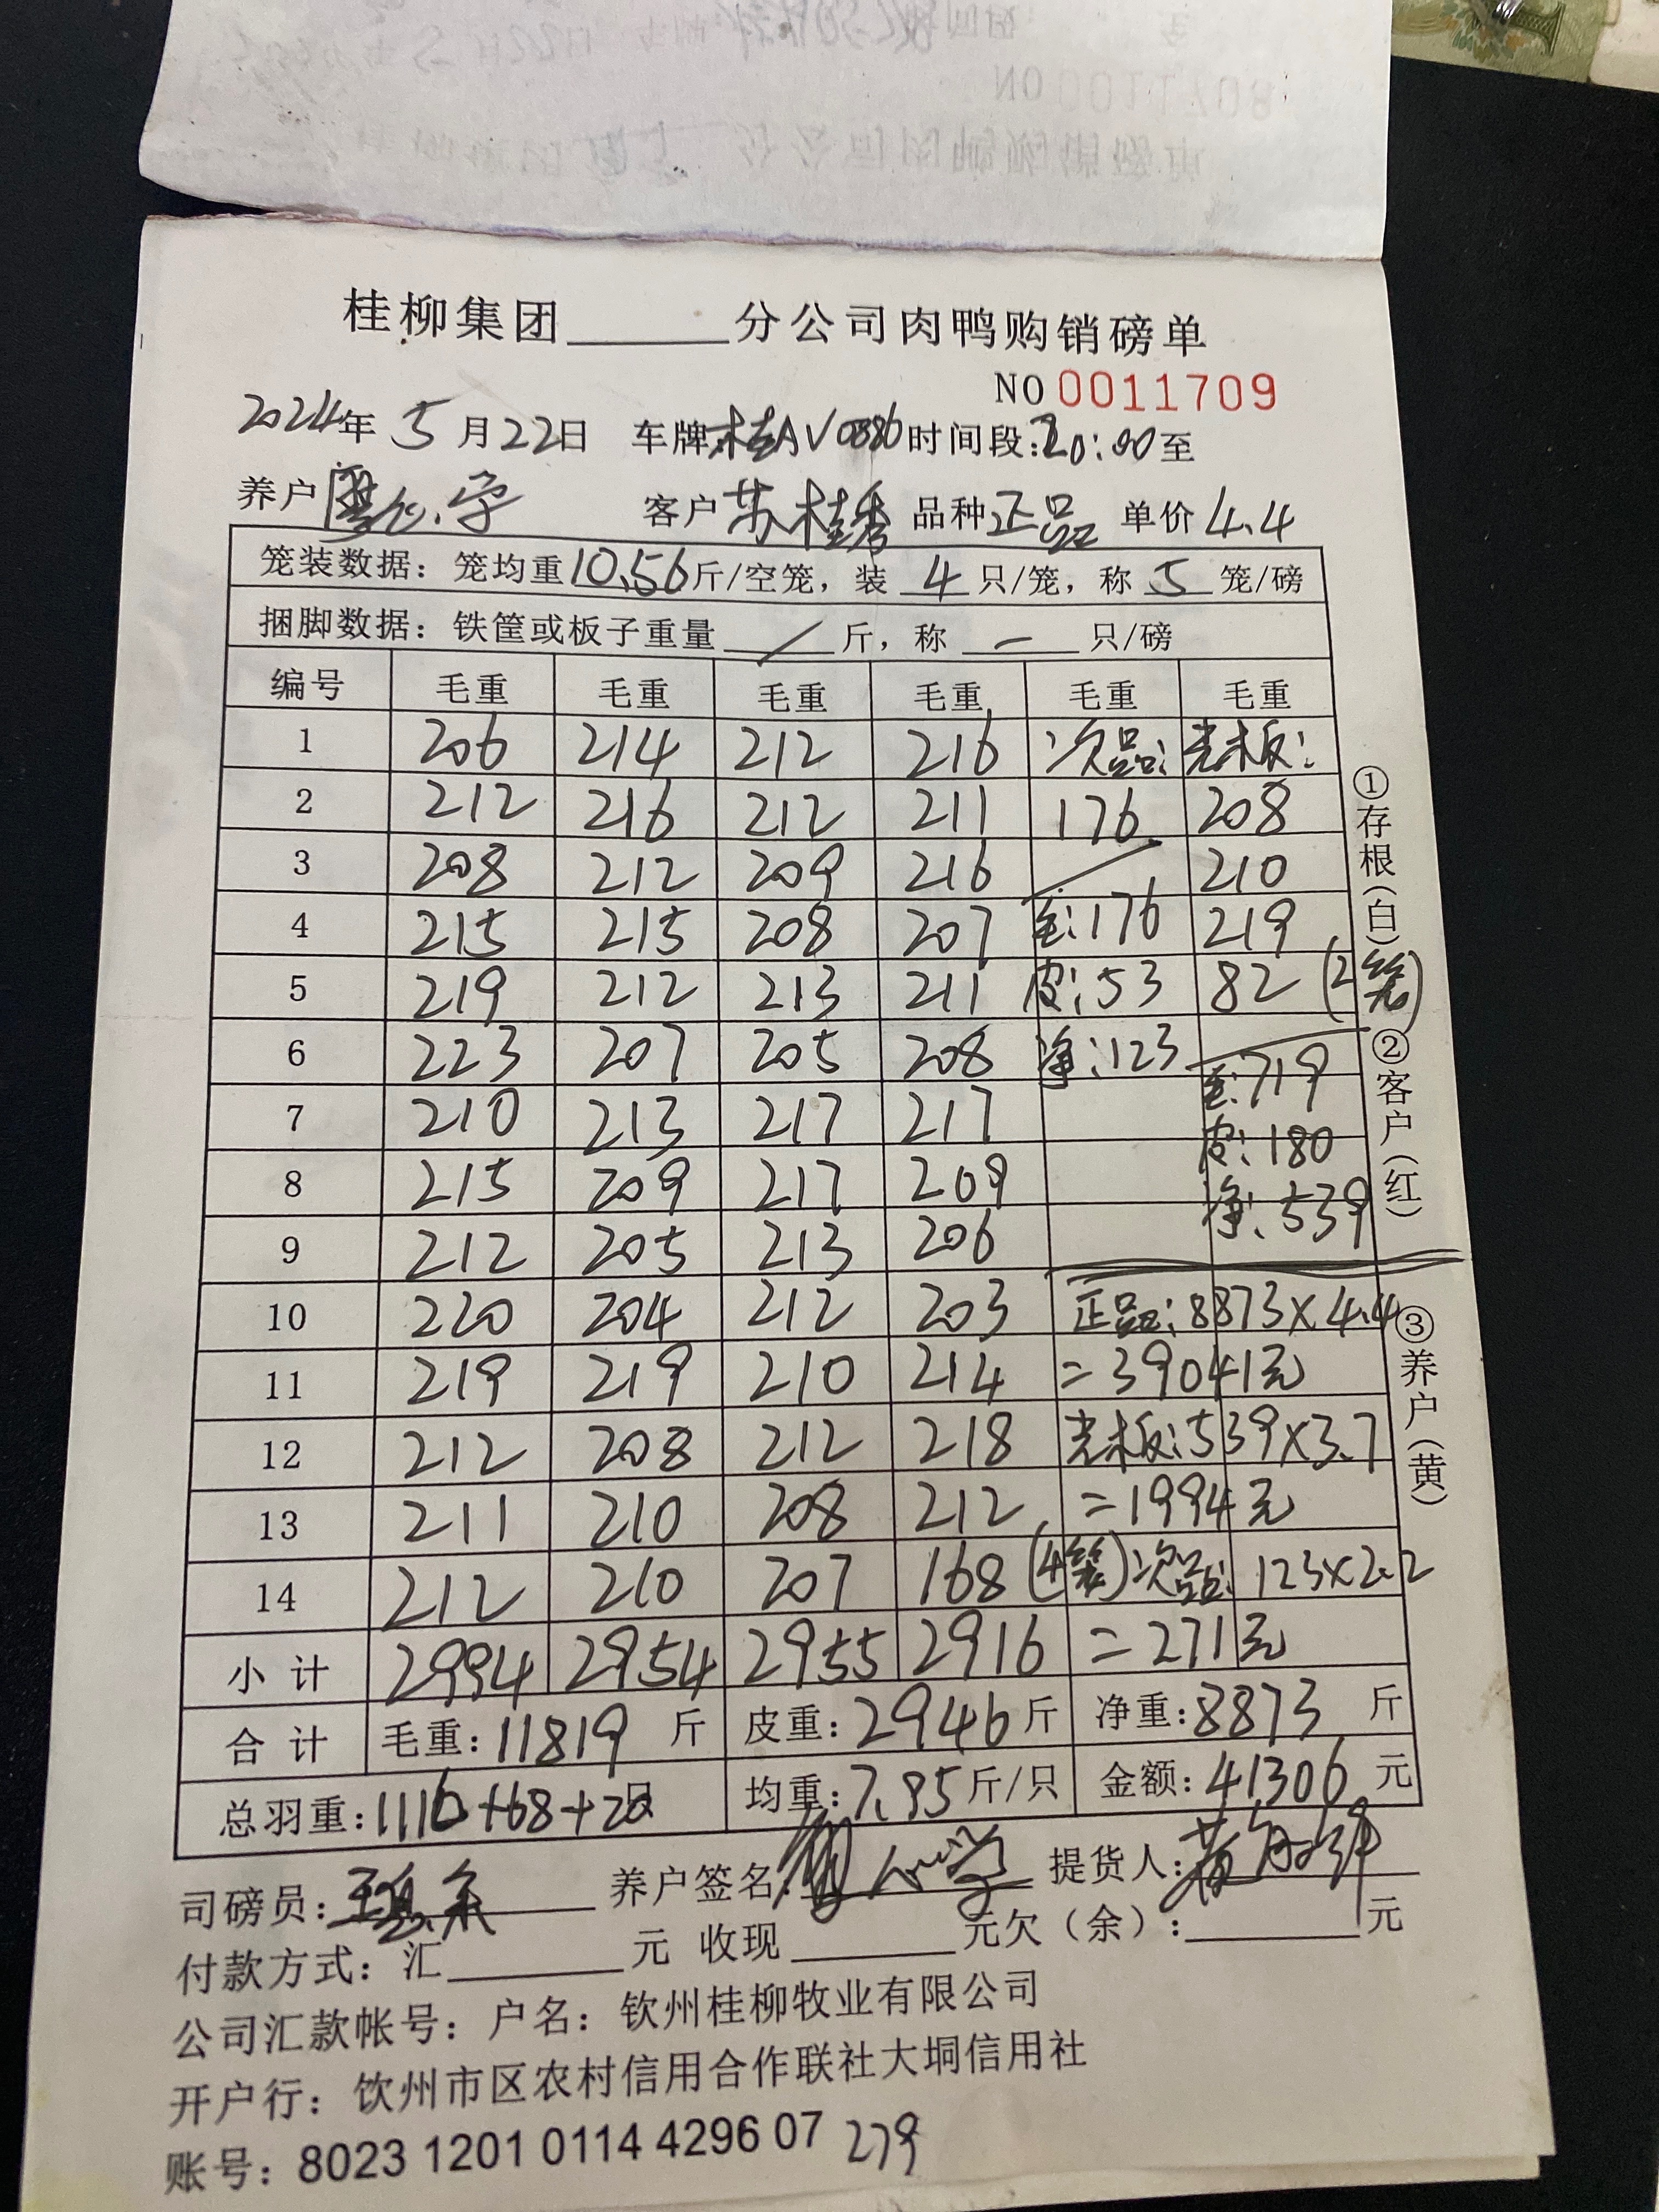 桂柳集团______分公司肉鸭购销磅单
NO 0011709
2024年 5月22日 车牌:桂AV0886 时间段:20:00至
养户 客户 苏桂秀 品种 正品 单价 4.4
笼装数据：笼均重10.56斤/空笼，装 4 只/笼，称 5 笼/磅
捆脚数据：铁筐或板子重量 / 斤，称 一 只/磅
编号 毛重 毛重 毛重 毛重 毛重 毛重
1 206 214 212 216 次品: 光板:
2 212 216 212 211 176 208
3 208 212 209 216 210
4 215 215 208 207 毛:176 219
5 219 212 213 211 皮:53 82 (2笼)
6 223 207 205 208 净:123 毛:719
7 210 213 217 217 皮:180
8 215 209 217 209 净:539
9 212 205 213 206
10 220 204 212 203 正品:8873×4.4
11 219 219 210 214 =39041元
12 212 208 212 218 光板:539×3.7
13 211 210 208 212 =1994元
14 212 210 207 168 (4笼) 次品: 123×2.2
小计 2994 2954 2955 2916 =271元
合计 毛重:11819 斤 皮重:2946斤 净重:8873 斤
总羽重:1116+68+20 均重:7.95斤/只 金额:41306元
司磅员: 养户签名: 提货人:
付款方式：汇______元 收现______元欠（余）:______元
公司汇款帐号：户名：钦州桂柳牧业有限公司
开户行：钦州市区农村信用合作联社大垌信用社
账号：8023 1201 0114 4296 07 279
①存根（白）
②客户（红）
③养户（黄）